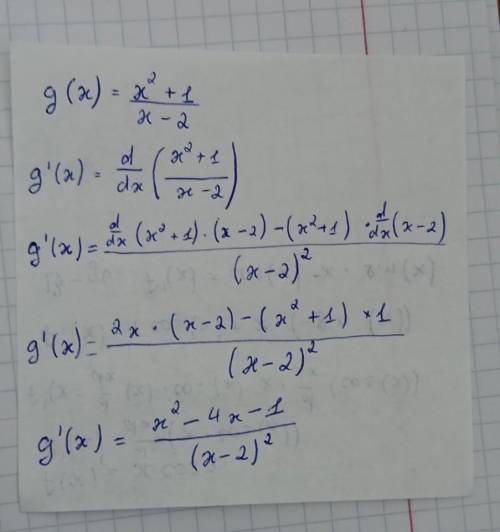 g(x) = (x² + 1)/(x - 2)
g'(x) = d/dx ((x² + 1)/(x - 2))
g'(x) = (d/dx (x² + 1) · (x - 2) - (x² + 1) · d/dx (x - 2))/(x - 2)²
g'(x) = (2x · (x - 2) - (x² + 1) × 1)/(x - 2)²
g'(x) = (x² - 4x - 1)/(x - 2)²